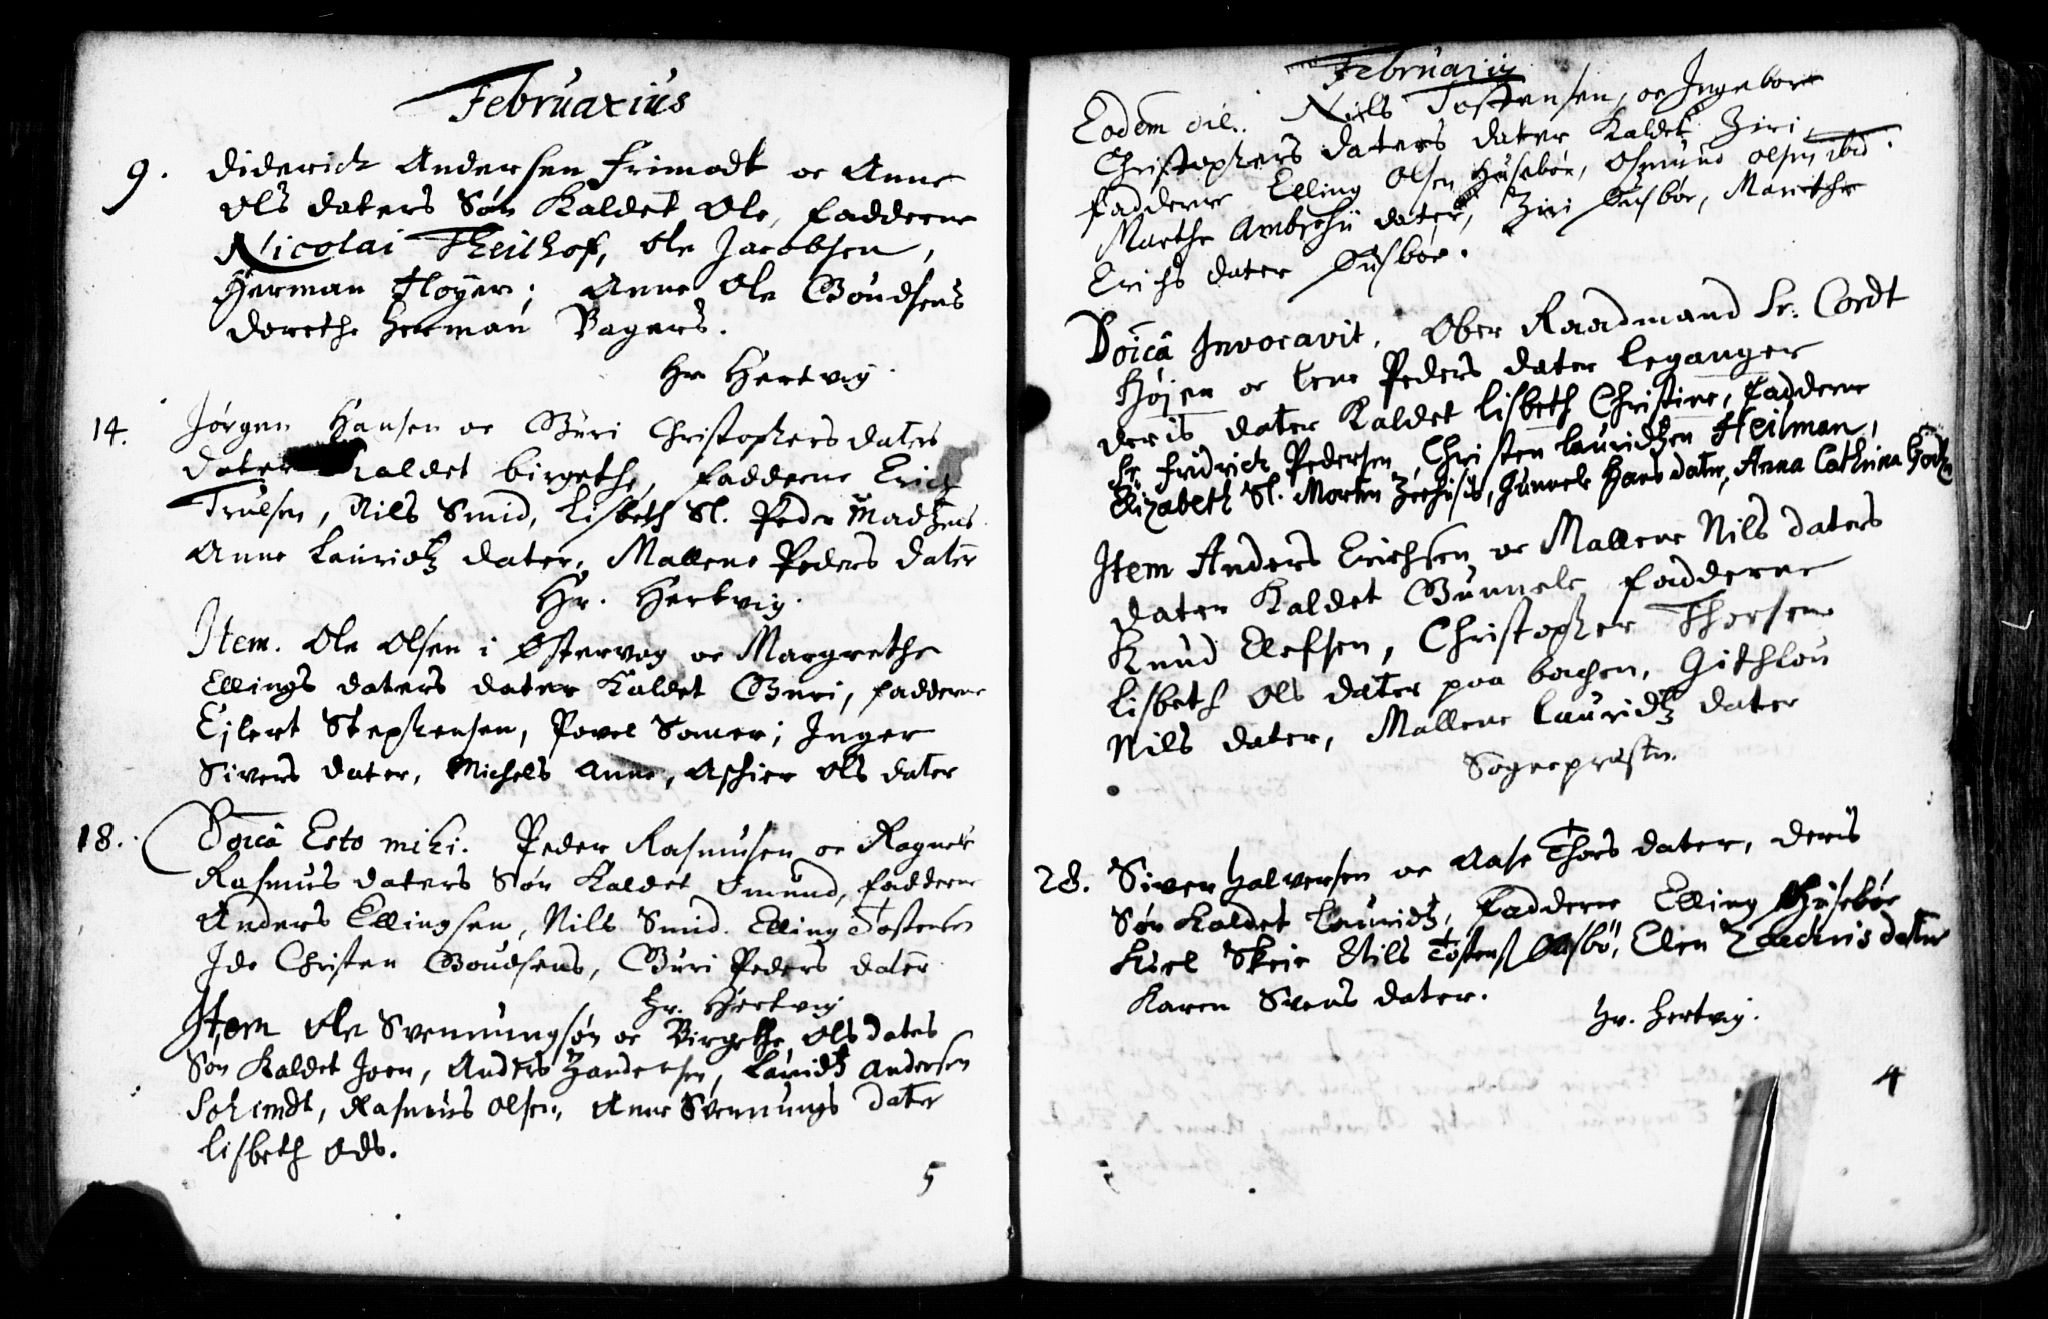 Februarius
9. Diderich Andersen Frimodt oc Anne
Ols daters Søn Kaldet Ole, fadderne
Nicolai Theilhof, Ole Jacobsen,
Herman Høyer; Anne Ole Goudsens
Dorethe Herman Bagers.
Hr Hertvig.
14. Jørgen Hansen oc Guri Christophers daters
dater Kaldet birgethe, fadderne Erich
Trulsen, Nils Smid, Lisbeth Sl. Peder Madtzens
Anne Lauridtz dater, Mallene Peders dater
Hr. Hertvig.
Item. Ole Olsen i Østervog oc Margrethe
Ellings daters dater Kaldet Guri, fadderne
Eilert Stephensen, Povel Somer; Inger
Sivers dater, Michels Anne, Aschier Ols dater
18. Doīcâ Esto mihi. Peder Rasmusen oc Ragnele
Rasmus daters Søn Kaldet Omund, fadderne
Anders Ellingsen, Nils Smid. Elling Tostensen
Ide Christen Goudsens, Guri Peders dater
Hr. Hertvig
Item Ole Svennungsøn oc Birgethe Ols daters
Søn Kaldet Joen, Anders Zandersen, Lauridtz Andersen
Schmidt, Rasmus Olsen, Anne Svennungs dater
Lisbeth Ods.
5
Februarij
Eodem die. Niels Tostensen, oc Ingebor
Christophers daters dater Kaldet Ziri,
fadderne Elling Olsen Husebøe, Osmund Olsen ibid.
Marthe Ambrosii dater, Ziri Husbøe, Marithe
Erichs dater Husbøe.
Doīcâ Invocavit. Ober Raadmand Sr: Cordt
Højer oc Lene Peders dater Leganger
deris dater Kaldet Lisbeth Christine, fadderne
Sr Fridrich Pedersen, Christen Lauridtzen Heilman,
Elizabeth Sl. Morten, Gunnele Hans dater, Anna Cathrina
Item Anders Erichsen oc Mallene Nils daters
dater Kaldet Gunnele fadderne
Knud Elefsen, Christopher Thorsen
Lisbeth Ols dater paa backen, Githlou
Nils dater, Mallene Lauridtz dater
Sognepræsten.
28. Siver Halversen oc Aase Thors dater, deris
Søn Kaldet Lauridtz, fadderne Elling Husebøe
Kiel Skeie Nils Tostens Husbø, Elen Zachris dater
Karen Svens dater.
Hr. Hertvig.
4